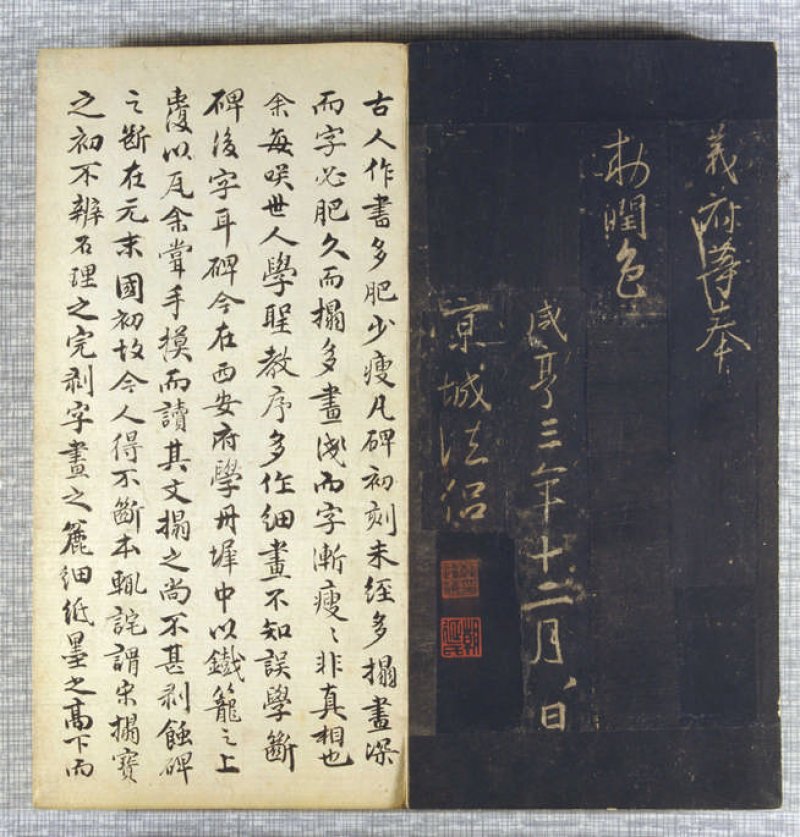 義府等奉
勑潤色
咸亨三年十二月八日
京城法侶
古人作書多肥少瘦凡碑初刻未經多搨畫深
而字必肥久而搨多畫浅而字漸瘦〻非真相也
余每咲世人學聖教序多作細畫不知誤學斷
碑後字耳碑今在西安府學丹墀中以鐵籠之上
覆以瓦余嘗手摸而讀其文搨之尚不甚剥蝕碑
之斷在元末國初故今人得不斷本輒詫謂宋搨寳
之初不辨石理之完剥字畫之麄細紙墨之髙下而